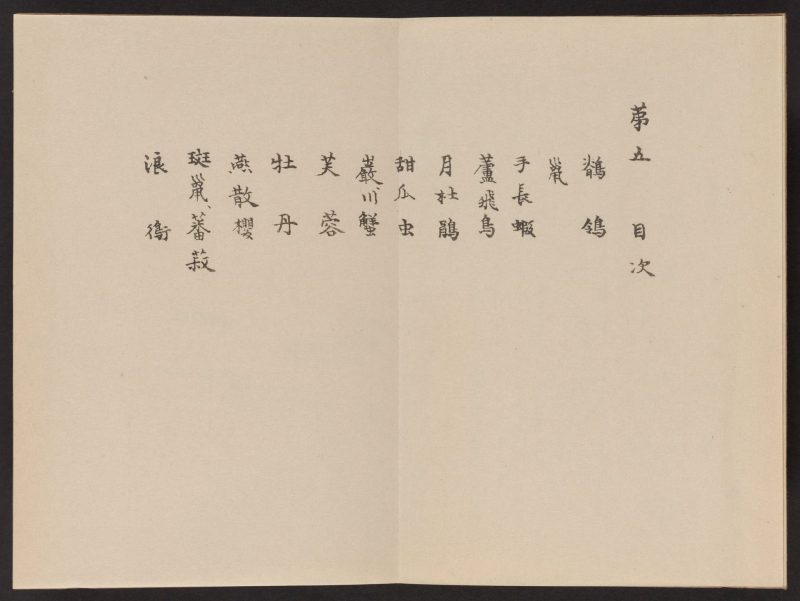 第五 目次
鶺鴒
鼠
手長蝦
蘆飛鳥
月杜鵑
甜瓜虫
巌川蟹
芙蓉
牡丹
燕散櫻
斑鼠、蕃菽
浪